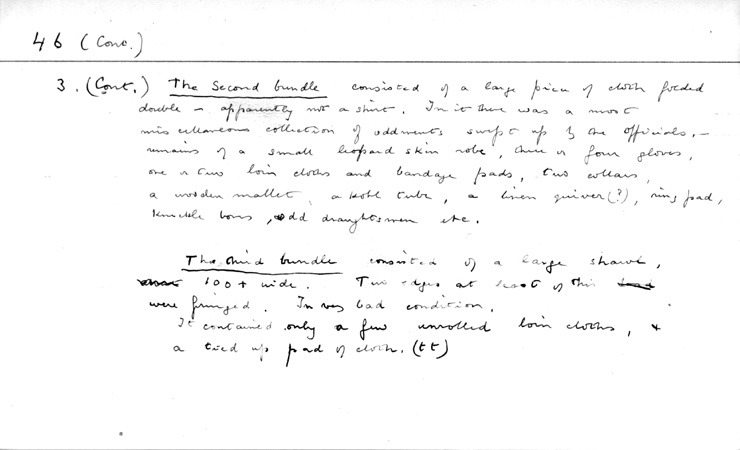 46 (Conc.)
3. (Cont.) The second bundle consisted of a large piece of cloth folded
double - apparently not a shirt. In it there was a most
miscellaneous collection of oddments swept up by the officials, -
remains of a small leopard skin robe, three or four gloves,
one or two loin cloths and bandage pads, two collars,
a wooden mallet, a kohl tube, a linen quiver(?), ring pad,
knuckle bones, odd draughtsmen etc.
The third bundle consisted of a large shawl,
100+ wide. Two edges at least of this
were fringed. In very bad condition.
It contained only a few unrolled loin cloths, +
a tied up pad of cloth. (tt)